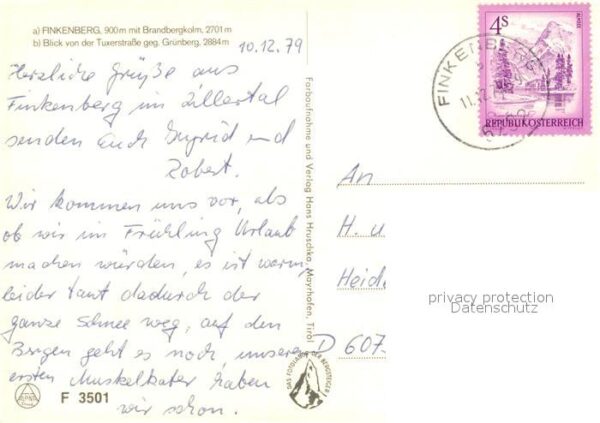 a) FINKENBERG, 900m mit Brandbergkolm, 2701 m
b) Blick von der Tuxerstraße geg. Grünberg, 2884 m
10.12.79
Herzliche Grüße aus
Finkenberg im Zillertal
senden Euch Ingrid und
Robert.
Wir kommen uns vor, als
ob wir im Frühling Urlaub
machen würden, es ist warm,
leider taut dadurch der
ganze Schnee weg, auf den
Bergen geht es noch, unseren
ersten Muskelkater haben
wir schon.
F 3501
Farbaufnahme und Verlag Hans Hruschka, Mayrhofen, Tirol
DAS FOTOHAUS DER BERGSTEIGER
4S
ALMSEE
REPUBLIK ÖSTERREICH
FINKENBERG
11.12.79
An
H. u
Heid
D 607
privacy protection
Datenschutz